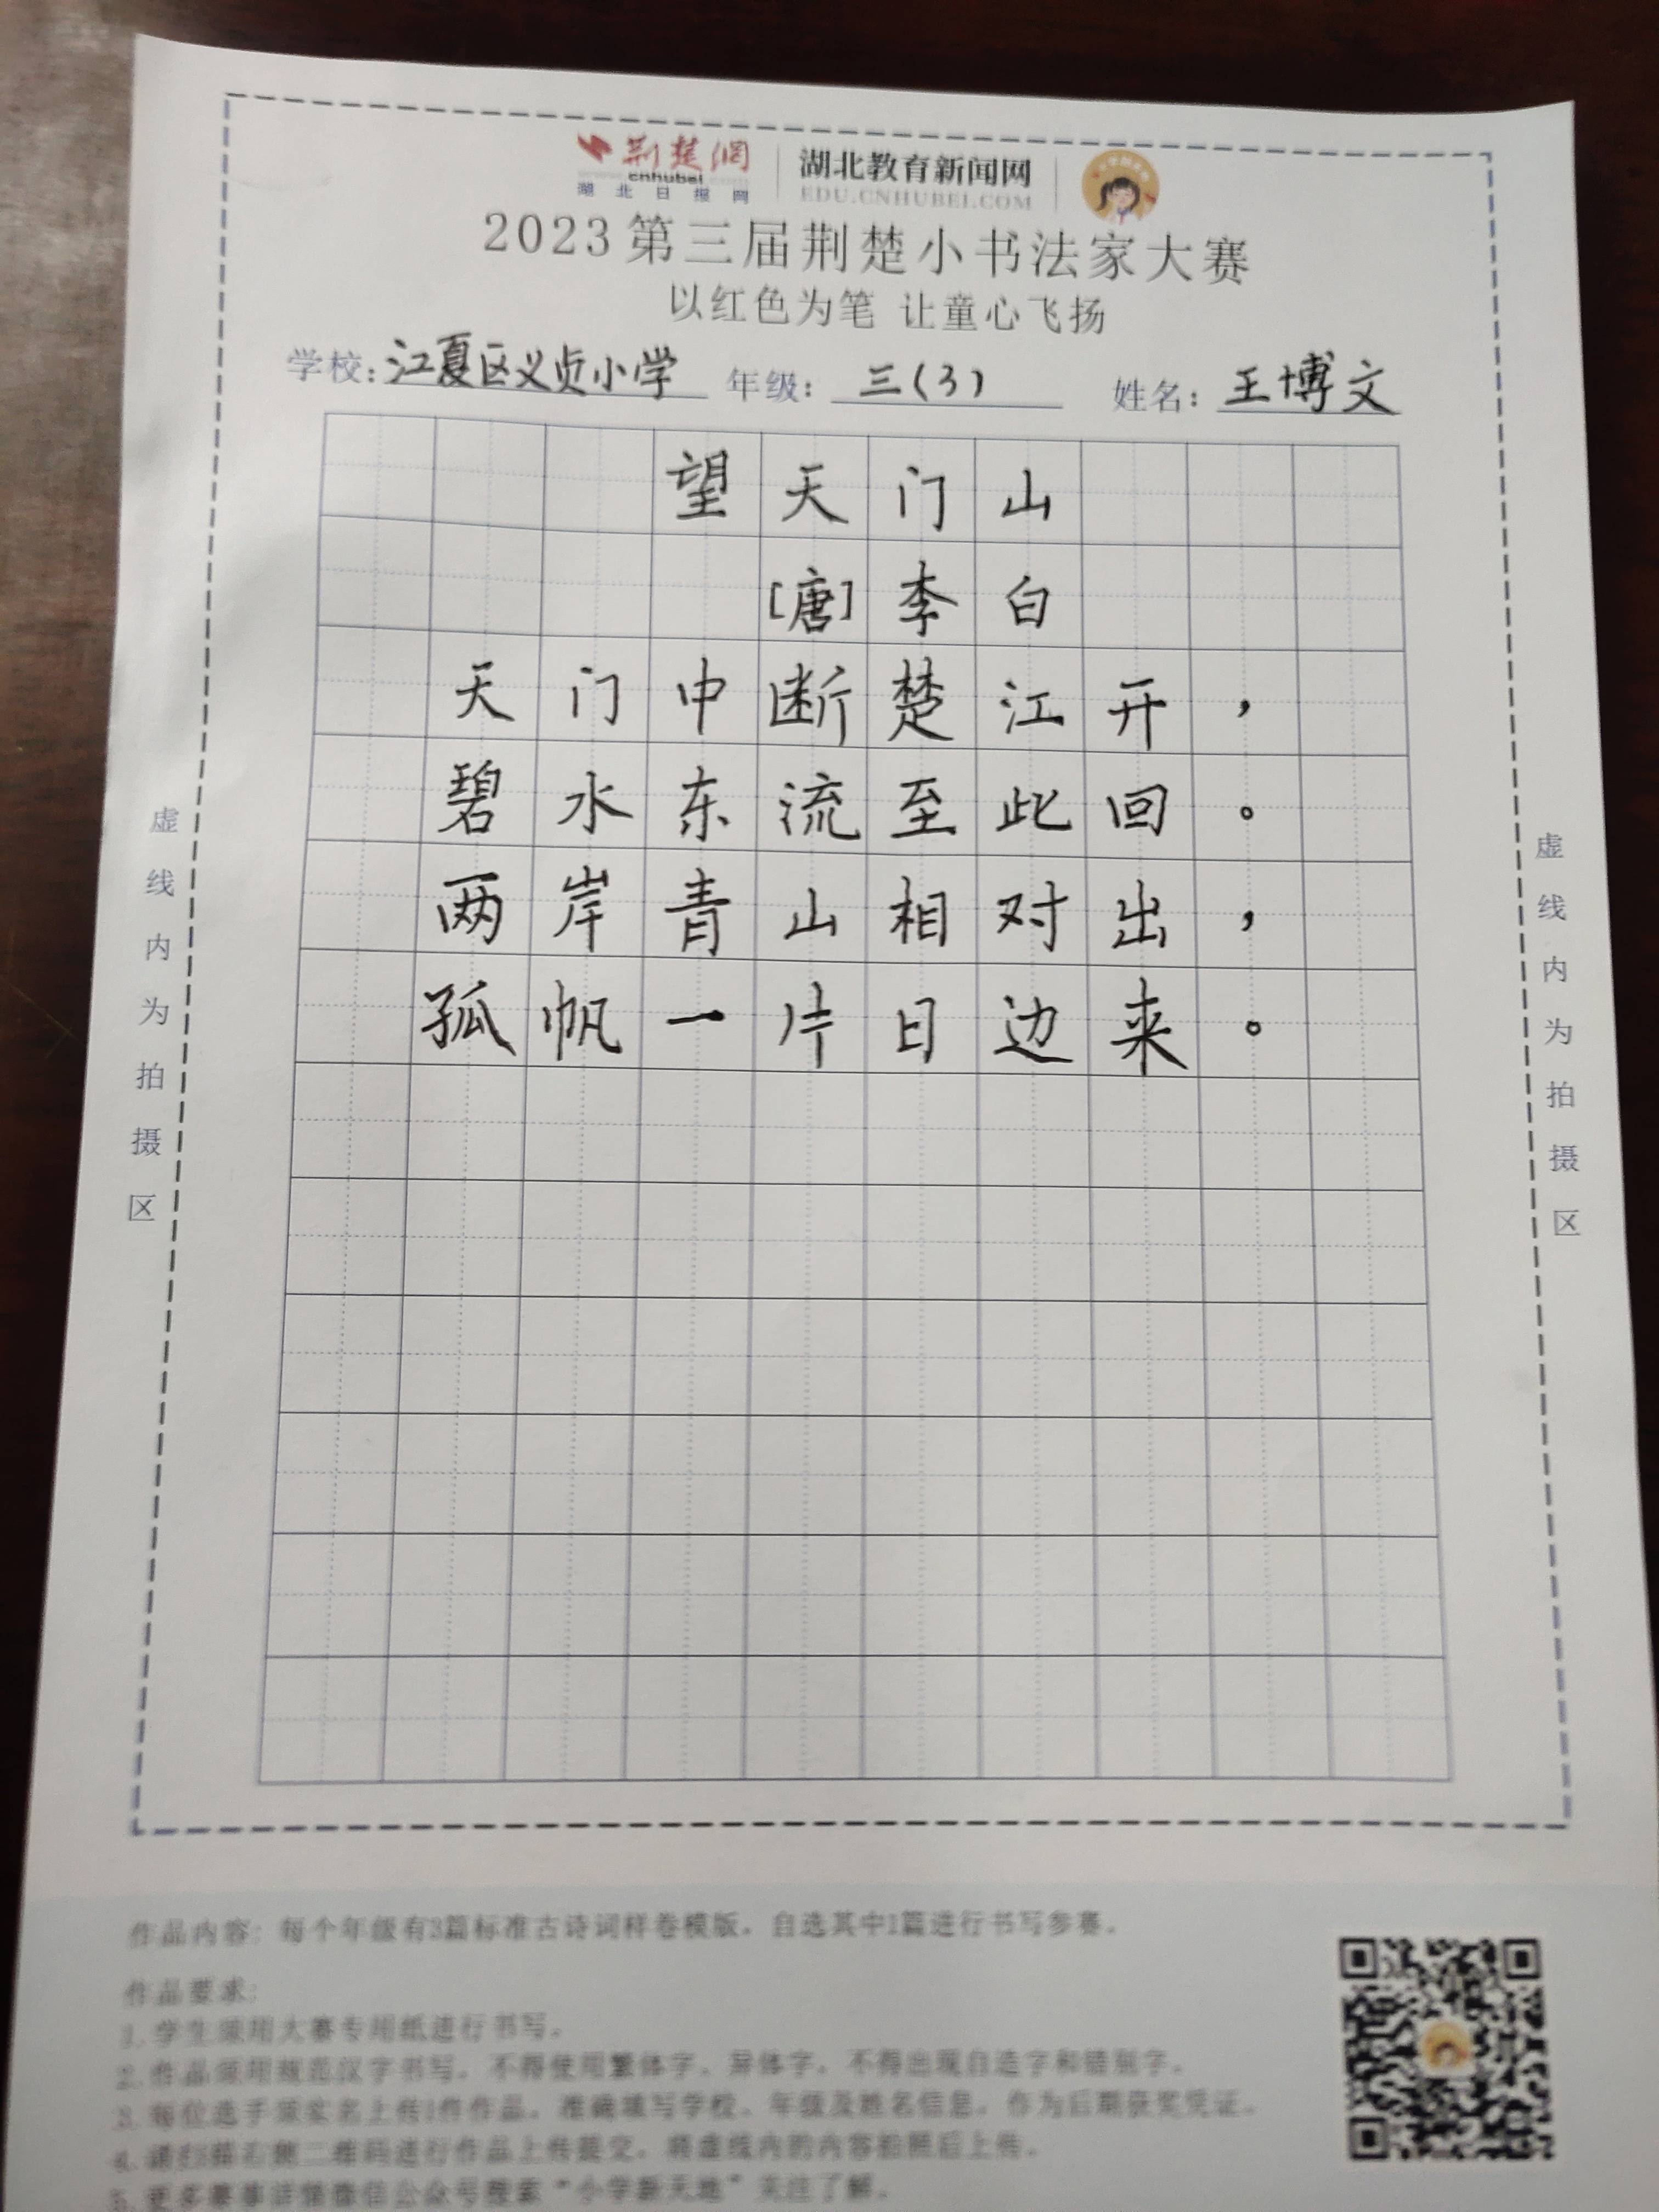 荆楚网 湖北教育新闻网
cnhubei EDU.CNHUBEI.COM
湖北日报网
2023第三届荆楚小书法家大赛
以红色为笔 让童心飞扬
学校：江夏区义贞小学 年级：三（3） 姓名：王博文
望天门山
[唐]李白
天门中断楚江开，
碧水东流至此回。
两岸青山相对出，
孤帆一片日边来。
虚线内为拍摄区
虚线内为拍摄区
作品内容：每个年级有3篇标准古诗词样卷模版，自选其中1篇进行书写参赛。
作品要求：
1.学生须用大赛专用纸进行书写。
2.作品须用规范汉字书写，不得使用繁体字、异体字，不得出现自造字和错别字。
3.每位选手须实名上传1件作品，准确填写学校、年级及姓名信息，作为后期获奖凭证。
4.请扫描右侧二维码进行作品上传提交，将虚线内的内容拍照后上传。
5.更多赛事详情微信公众号搜索“小学新天地”关注了解。